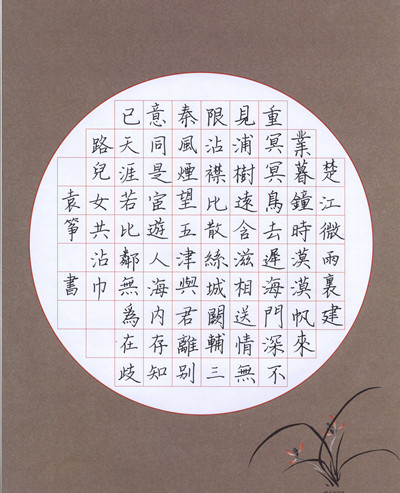 楚江微雨裏建
業暮鐘時漠漠帆來
重冥冥鳥去遲海門深不
見浦樹遠含滋相送情無
限沾襟比散絲城闕輔三
秦風煙望五津與君離別
意同是宦遊人海内存知
已天涯若比鄰無爲在歧
路兒女共沾巾
袁箏書